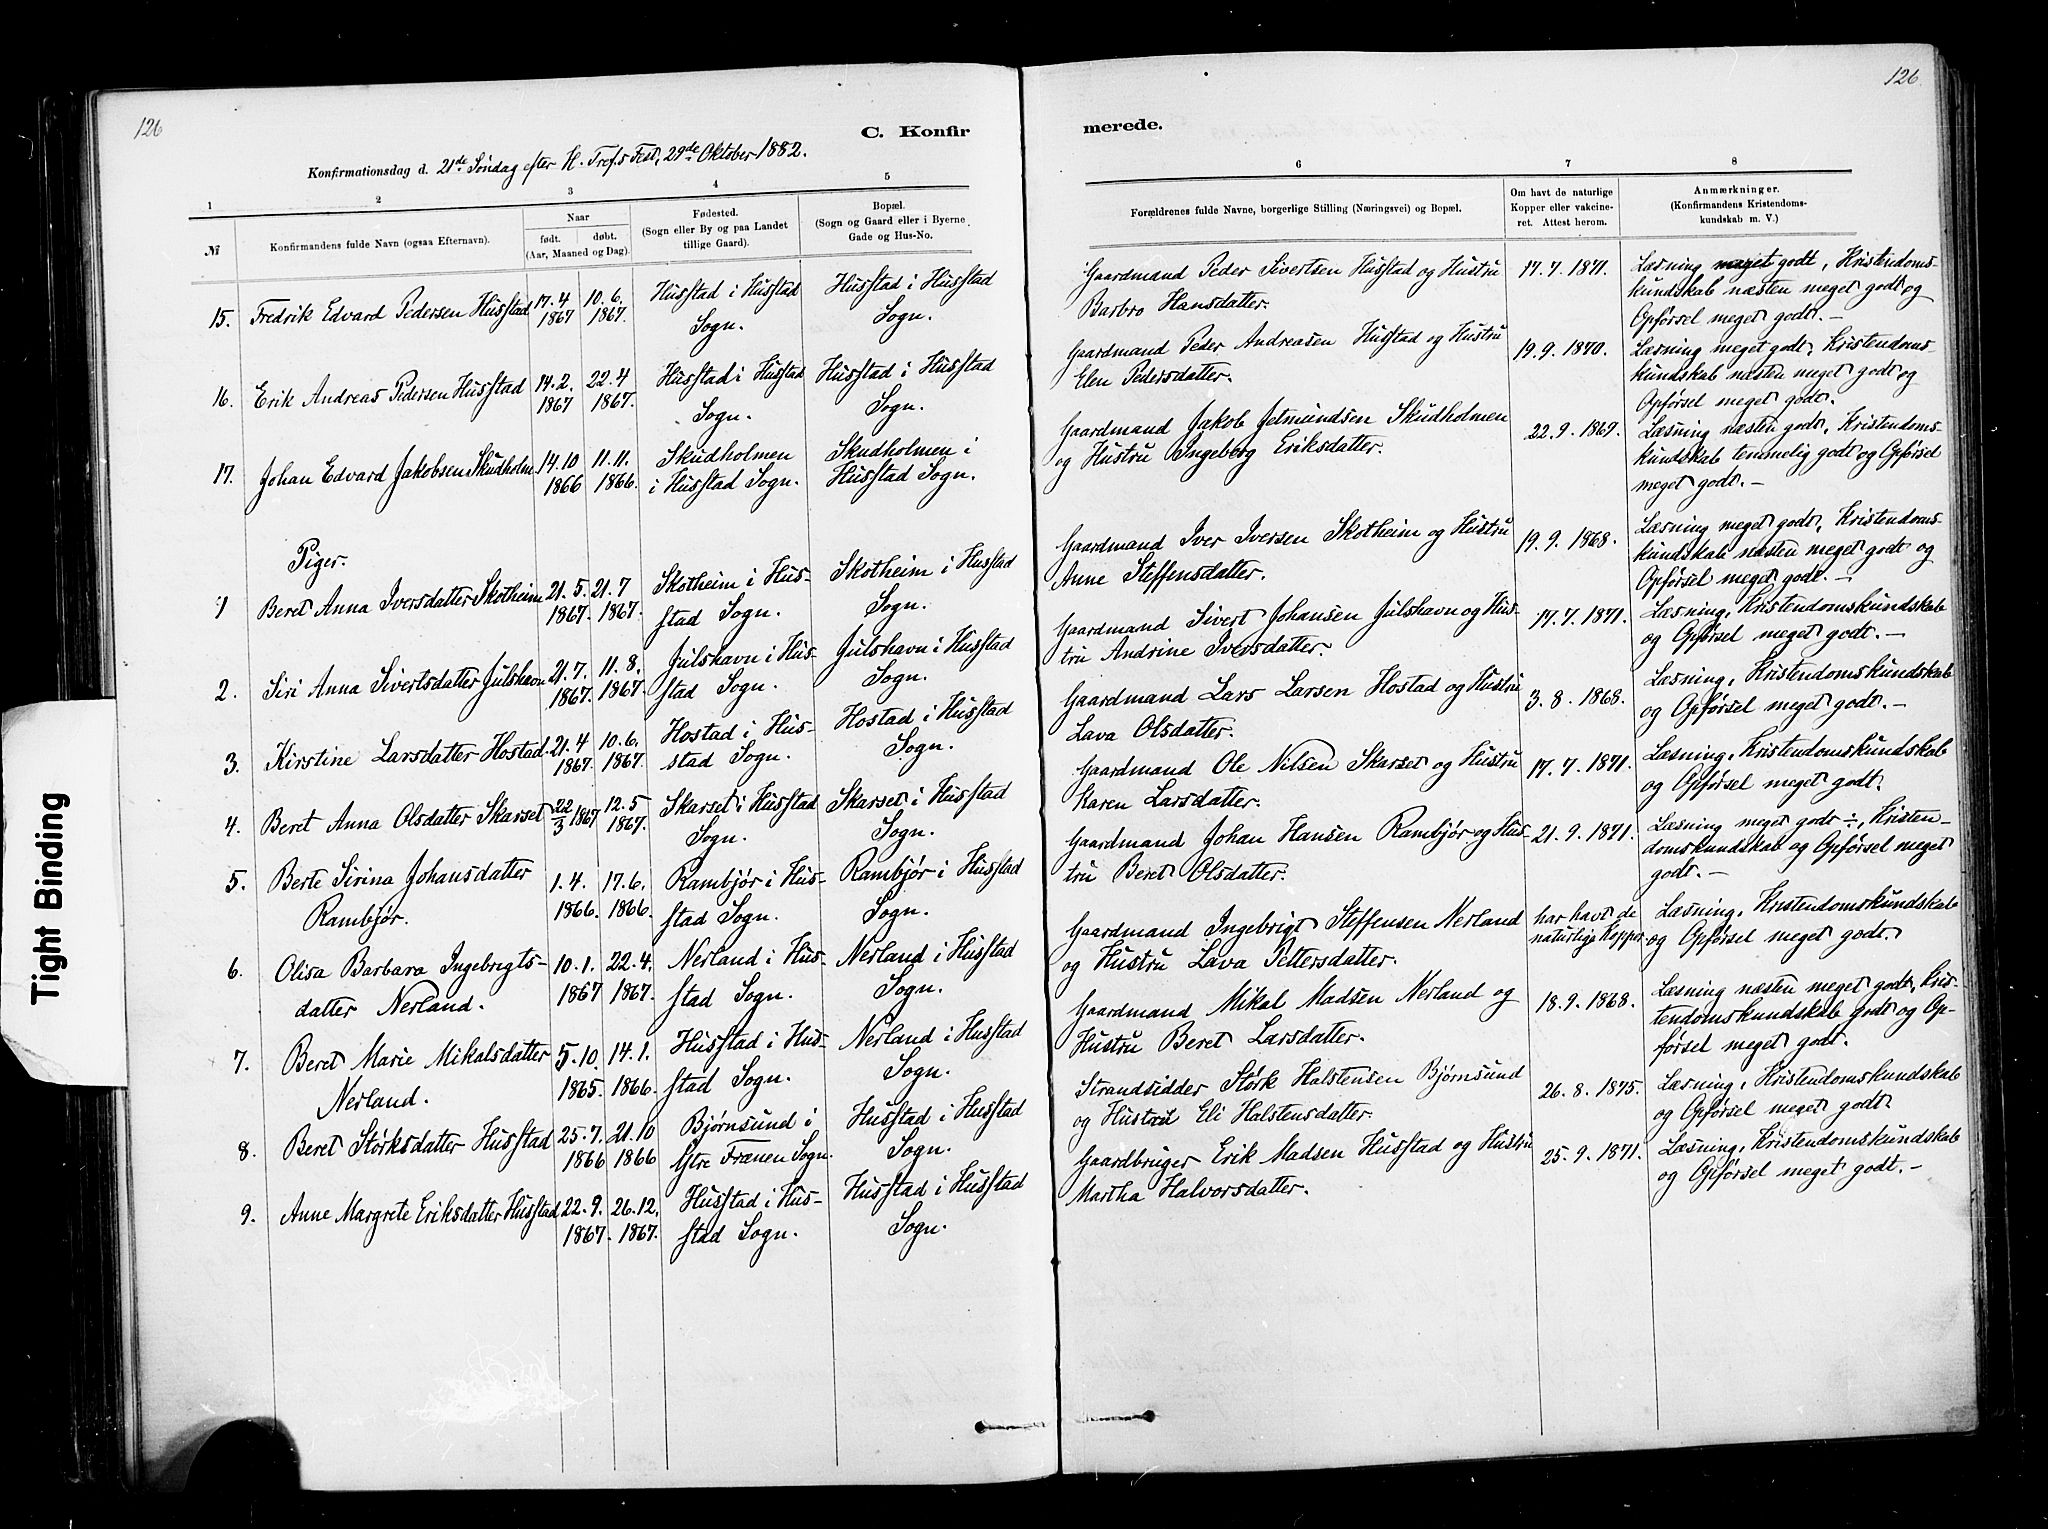 126
126
C. Konfir
merede.
Konfirmationsdag d. 21de Søndag efter H. Tref.s Fest, 29de Oktober 1882.
1
2
3
4
5
№
Konfirmandens fulde Navn (ogsaa Efternavn).
Naar
født. døbt.
(Aar, Maaned og Dag).
Fødested.
(Sogn eller By og paa Landet
tillige Gaard).
Bopæl.
(Sogn og Gaard eller i Byerne
Gade og Hus-No.
6
7
8
Forældrenes fulde Navne, borgerlige Stilling (Næringsvei) og Bopæl.
Om havt de naturlige
Kopper eller vakcine-
ret. Attest herom.
Anmærkninger.
(Konfirmandens Kristendoms-
kundskab m. V.)
15. Fredrik Edvard Pedersen Husstad 17.4 10.6. Husstad i Husstad Husstad i Husstad
1867 1867. Sogn. Sogn.
16. Erik Andreas Pedersen Husstad 14.2. 22.4 Husstad i Husstad Husstad i Husstad
1867 1867. Sogn. Sogn.
17. Johan Edvard Jakobsen Skudholm 14.10 11.11. Skudholmen Skudholmen i
1866 1866. i Husstad Sogn. Husstad Sogn.
Piger.
1 Beret Anna Iversdatter Skotheim 21.5. 21.7 Skotheim i Hus- Skotheim i Husstad
1867. 1867. stad Sogn. Sogn.
2. Siri Anna Sivertsdatter Julshavn 21.7. 11.8. Julshavn i Hus- Julshavn i Husstad
1867. 1867 stad Sogn. Sogn.
3. Kirstine Larsdatter Hostad. 21.4 10.6. Hostad i Hus- Hostad i Husstad
1867. 1867. stad Sogn. Sogn.
4. Beret Anna Olsdatter Skarset 22/3 1867 12.5 Skarset i Husstad Skarset i Husstad
1867. Sogn. Sogn.
5. Berte Sirina Johansdatter 1.4. 17.6. Rambjør i Hus- Rambjør i Husstad
Rambjør. 1866. 1866. stad Sogn. Sogn.
6. Olisa Barbara Ingebrigts- 10.1. 22.4. Nerland i Hus- Nerland i Husstad
datter Nerland. 1867 1867. stad Sogn. Sogn.
7. Beret Marie Mikalsdatter 5.10. 14.1. Husstad i Hus- Nerland i Husstad
Nerland. 1865. 1866. stad Sogn. Sogn.
8. Beret Størksdatter Husstad 25.7. 21.10 Bjørnsund i Husstad i Husstad
1866 1866 Ytre Frænen Sogn. Sogn.
9. Anne Margrete Eriksdatter Husstad 22.9. 26.12. Husstad i Hus- Husstad i Husstad
1867. 1867. stad Sogn. Sogn.
Gaardmand Peder Sivertsen Husstad og Hustru 17.7.1871. Læsning meget godt, Kristendoms-
Barbro Hansdatter. kundskab næsten meget godt og
Opførsel meget godt. —
Gaardmand Peder Andreasen Husstad og Hustru 19.9.1870. Læsning meget godt, Kristendoms-
Elen Pedersdatter. kundskab næsten meget godt og
Opførsel meget godt.
Gaardmand Jakob Jetmundsen Skudholmen 22.9.1869. Læsning næsten godt, Kristendoms-
og Hustru Ingeborg Eriksdatter. kundskab temmelig godt og Opførsel
meget godt. —
Gaardmand Iver Iversen Skotheim og Hustru 19.9.1868. Læsning meget godt, Kristendoms-
Anne Steffensdatter. kundskab næsten meget godt og
Opførsel meget godt. —
Gaardmand Sivert Johansen Julshavn og Hus- 17.7.1871. Læsning, Kristendomskundskab
tru Andrine Iversdatter. og Opførsel meget godt. —
Gaardmand Lars Larsen Hostad og Hustru 3.8.1868. Læsning, Kristendomskundskab
Lava Olsdatter. og Opførsel meget godt. —
Gaardmand Ole Nilsen Skarset og Hustru 17.7.1871. Læsning, Kristendomskundskab
Karen Larsdatter. og Opførsel meget godt.
Gaardmand Johan Hansen Rambjør og Hus- 21.9.1871. Læsning meget godt ÷, Kristen-
tru Beret Olsdatter. domskundskab og Opførsel meget
godt. —
Gaardmand Ingebrigt Steffensen Nerland har havt de Læsning, Kristendomskundskab
og Hustru Lava Pettersdatter. naturlige Kopper. og Opførsel meget godt.
Gaardmand Mikal Madsen Nerland og 18.9.1868. Læsning næsten meget godt, Kris-
Hustru Beret Larsdatter. tendomskundskab godt og Op-
førsel meget godt.
Strandsidder Størk Halstensen Bjørnsund 26.8.1875. Læsning, Kristendomskundskab
og Hustru Eli Halstensdatter. og Opførsel meget godt.
Gaardbruger Erik Madsen Husstad og Hustru 25.9.1871. Læsning, Kristendomskundskab
Martha Halvorsdatter. og Opførsel meget godt. —
Tight Binding